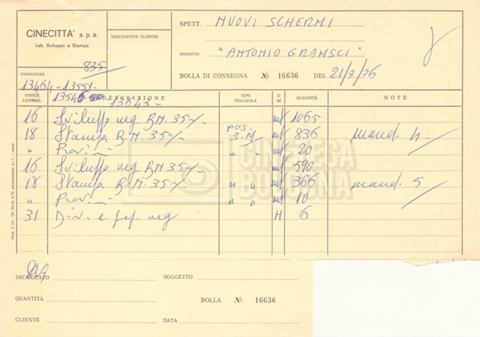 CINECITTÀ s.p.a.
Lab. Sviluppo e Stampa
NOMINATIVO CLIENTE
SPETT. NUOVI SCHERMI
SOGGETTO "ANTONIO GRAMSCI"
835
COMMESSE
13464-13551-
13643-
BOLLA DI CONSEGNA № 16636 DEL 21/7/76
CODICE LAVORAZ. DESCRIZIONE TIPO PELLICOLA U M QUANTITÀ NOTE
16 Sviluppo neg B.N. 35% mt 1065
18 Stampa B.N. 35% pos. 3.M mt 836 mand. 4
" Provini " " 20
16 Sviluppo neg B.N. 35% mt 590
18 Stampa B.N. 35% " " 366 mand. 5
" Provini " " 10
31 Div. e neg H 6
CINETECA
BOLOGNA
INCARICATO SOGGETTO
QUANTITA BOLLA № 16636
CLIENTE DATA